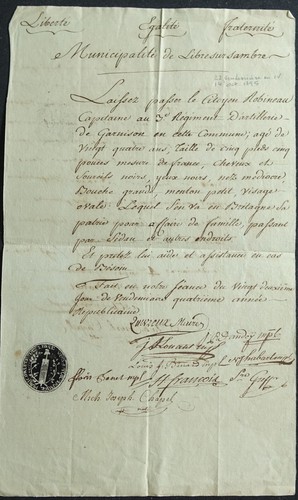 Liberté Égalité fraternité
Municipalité de Libresursambre
22 vendémiaire an 4
Laissez passer le Citoyen Robineau
Capitaine au 3e Regiment D'artillerie
de Garnison en cette Commune; agé de
Vingt quatre ans, Taille de Cinq pieds cinq
pouces mesure de france, Cheveux et
Sourcils noirs, yeux noirs, nez médiocre
Bouche grande menton petit visage
ovale. Lequel s'en va en Bretagne sa
patrie pour affaire de famille, passant
par Sedan et autres endroits
Et pretez lui aide et assistance en cas
de Besoin
Fait en notre séance du Vingt deuxieme
Jour de Vendemiaire quatrieme année
Republicaine
Maire
francois
Mich Joseph